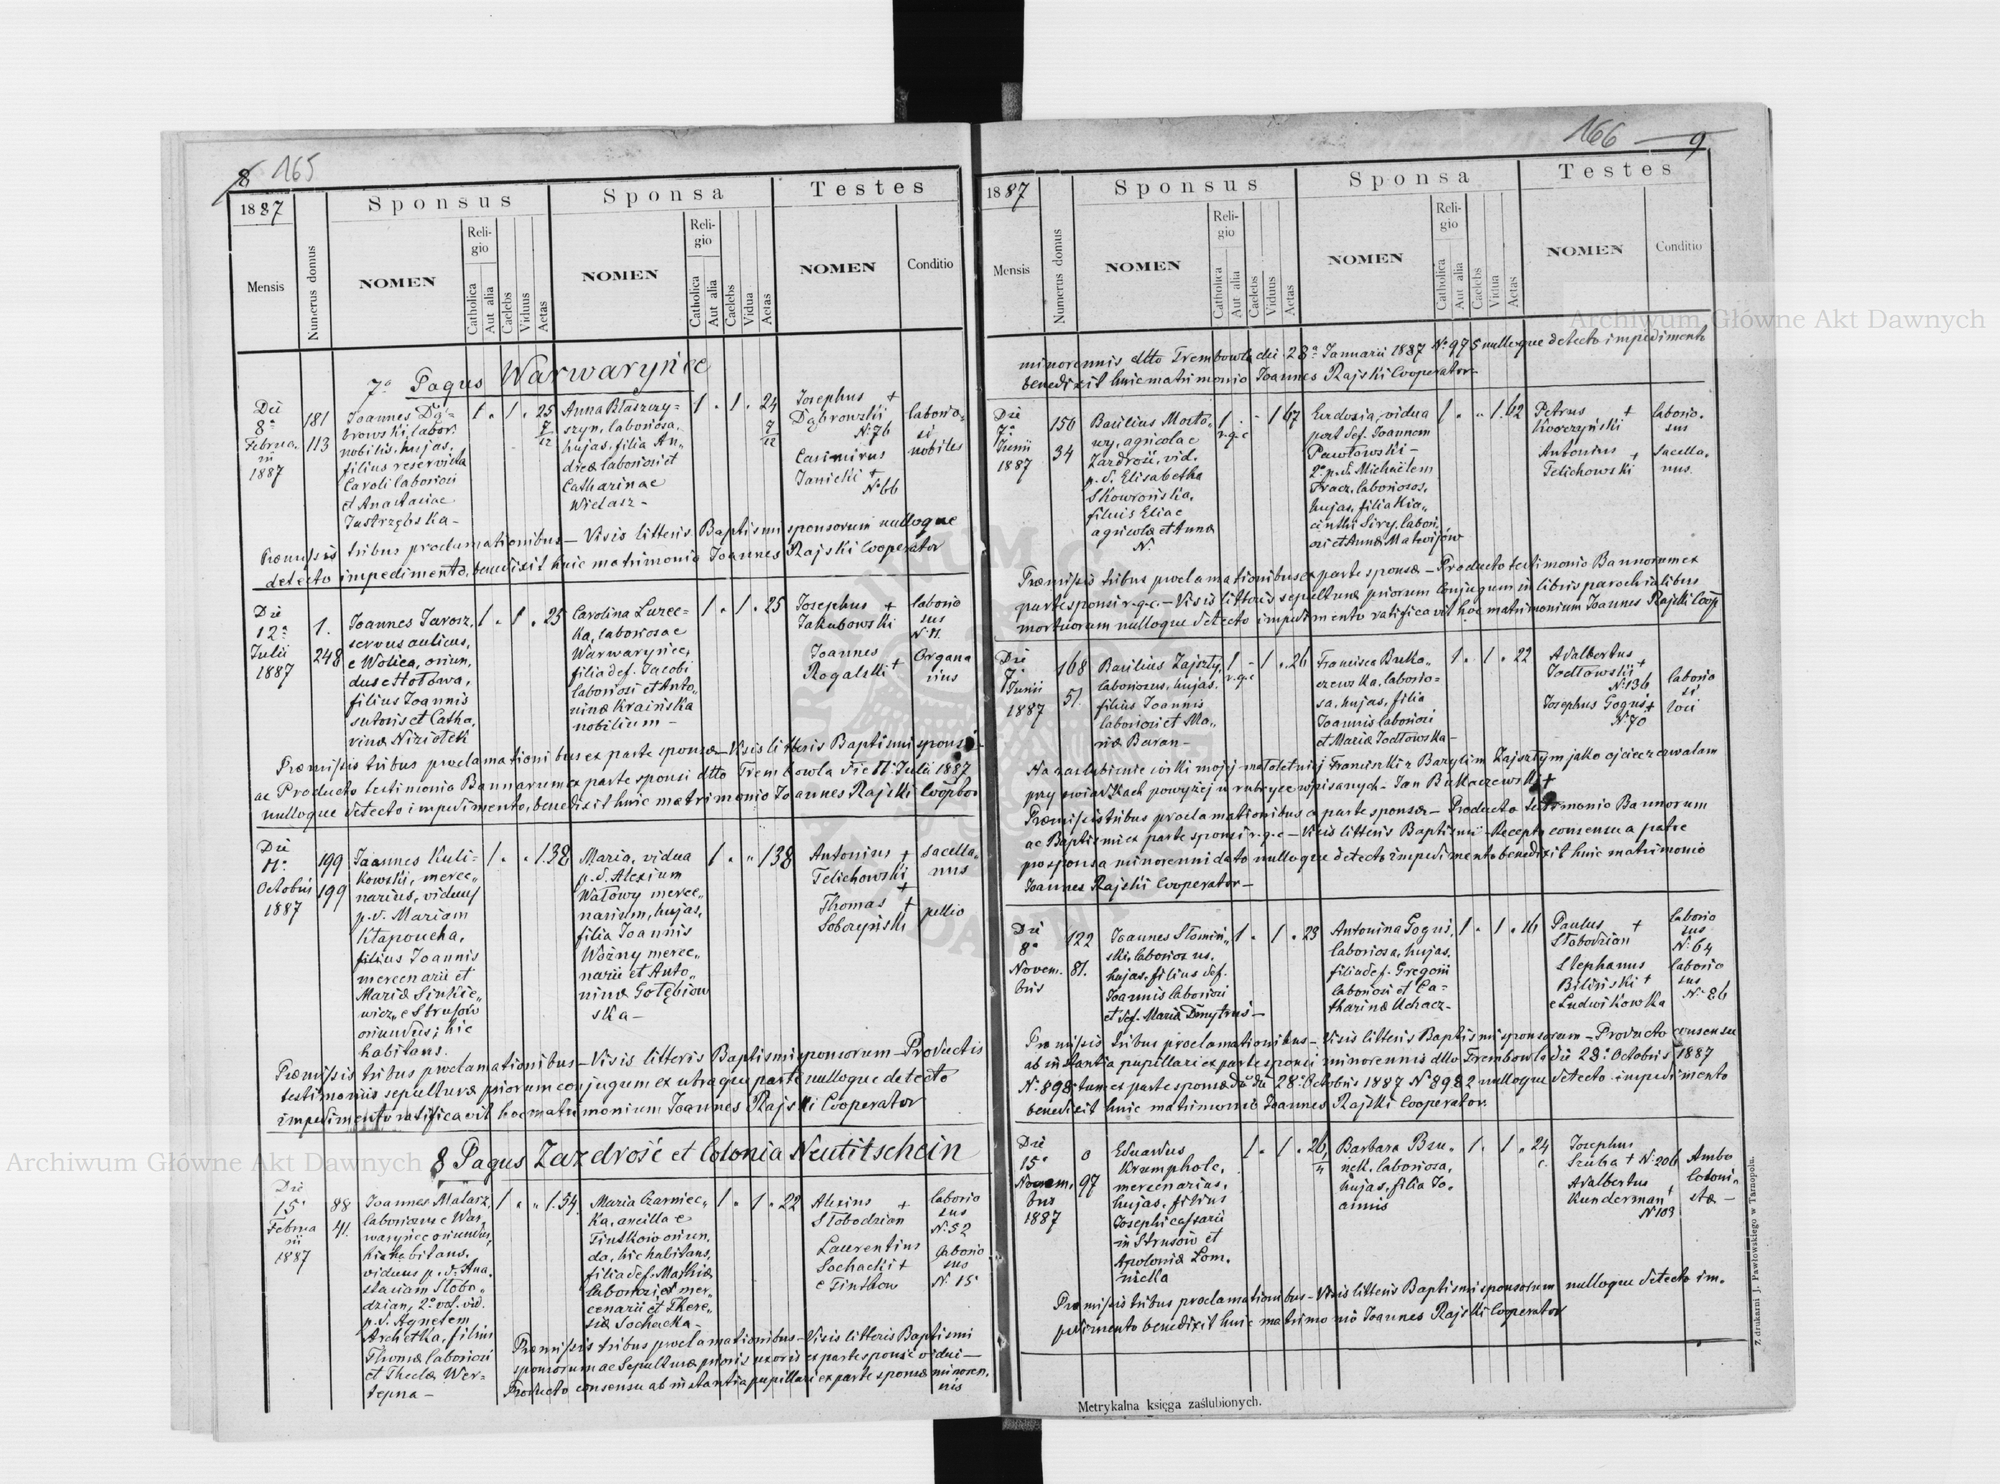 8 165
1887
Sponsus
Sponsa
Testes
Mensis
Numerus domus
NOMEN
Religio
Catholica
Aut alia
Caelebs
Viduus
Aetas
NOMEN
Religio
Catholica
Aut alia
Caelebs
Vidua
Aetas
NOMEN
Conditio
7º Pagus Warwaryńce
Die
8ª
Februa
rii
1887
181
113
Joannes Dą-
browski, labor.
nobilis, hujas,
filius reservista
Caroli laboriosi
et Anastasiae
Jastrzębska -
1 . 1 . 25
7/12
Anna Błaszczy-
szyn, laboriosa,
hujas, filia An-
dreæ laboriosi et
Catharinae
Wielasz -
1 . 1 . 24
7/12
Josephus +
Dąbrowski
Nº 76
Casimirus
Janicki +
Nº 66
laborio-
si
nobiles
Præmissis tribus proclamationibus - Visis litteris Baptismi sponsorum nulloque
detecto impedimento, benedixit huic matrimonio Joannes Rajski Cooperator
Die
12ª
Julii
1887
1.
248
Joannes Jarosz,
servus aulicus,
e Wolica, oriun-
dus e Hołdawa,
filius Joannis
sutoris et Catha-
rinæ Niziołek
1 . 1 . 25
Carolina Luzec-
ka, laboriosa e
Warwaryńce,
filia def. Jacobi
laboriosi et Anto-
ninæ Kraińska
nobilium -
1 . 1 . 25
Josephus +
Jakubowski
Joannes
Rogalski +
laborio
sus
Nº 11.
Organa
rius
Præmissis tribus proclamationibus ex parte sponsæ - Visis litteris Baptismi sponsæ -
ac Producto testimonio Bannorum ex parte sponsi dtto Trembowla die 11ª Julii 1887
nulloque detecto impedimento, benedixit huic matrimonio Joannes Rajski Cooptor
Die
11ª
Octobris
1887
199
199
Joannes Kuli-
kowski, merce-
narius, viduus
p. d. Mariam
Kłapoucha,
filius Joannis
mercenarii et
Mariæ Sinkie-
wicz, e Strusów
oriundus, hic
habitans.
1 . . 1.38
Maria, vidua
p. d. Alexium
Watowy merce-
narium, hujas,
filia Joannis
Woźny merce-
narii et Anto-
ninæ Gołębiow
ska -
1 . . 1 38
Antonius +
Telichowski
Thomas +
Sobczyński
sacella-
nus
pellio
Præmissis tribus proclamationibus - Visis litteris Baptismi sponsorum - Productis
testimoniis sepulturæ priorum conjugum ex utraque parte nulloque detecto
impedimento ratificavit hoc matrimonium Joannes Rajski Cooperator
8 Pagus Zazdrość et Colonia Neutitschein
Die
15ª
Februa
rii
1887
88
41.
Joannes Malarz,
laboriosus e War-
waryńce oriundus,
hic habitans,
viduus p. d. Ana-
stasiam Słobo-
dzian, 2º vot. vid.
p. d. Agnetem
Archetka, filius
Thomæ laboriosi
et Theclæ Wer-
tepna -
1 . . 1.54
Maria Czarniec-
ka, ancilla e
Tiutków oriun-
da, hic habitans,
filia def. Mathiæ
laboriosi et mer-
cenarii et There-
siæ Sochacka -
1 . 1 . 22
Alexius +
Słobodzian
Laurentius
Sochacki +
e Tiutkow
laborio
sus
Nº 52
laborio
sus
Nº 15
Præmissis tribus proclamationibus - Visis litteris Baptismi
sponsorum ac Sepulturæ prioris uxoris ex parte sponsi vidui -
Producto consensu ab instantia pupillari ex parte sponsæ minoren-
nis
166 9
1887
Sponsus
Sponsa
Testes
Mensis
Numerus domus
NOMEN
Religio
Catholica
Aut alia
Caelebs
Viduus
Aetas
NOMEN
Religio
Catholica
Aut alia
Caelebs
Vidua
Aetas
NOMEN
Conditio
minorennis dtto Trembowla die 28ª Januarii 1887 Nº 975 nulloque detecto impedimento
benedixit huic matrimonio Joannes Rajski Cooperator -
Die
7ª
Junii
1887
156
34
Basilius Morto-
wy, agricola e
Zazdrość, vid.
p. d. Elisabetha
Skowrońska,
filius Eliae
agricolæ et Annæ
N.
1 . - 1 67
r.g.c
Eudoxia, vidua
post def. Joannem
Pawłowski -
2º p. d. Michaëlem
Tracz, laboriosos,
hujas, filia Hia-
cinthi Siry, labori-
osi et Annæ Matwijów
1 . . 1. 62
Petrus +
Koczyński
Antonius +
Telichowski
laborio-
sus
sacella-
nus.
Præmissis tribus proclamationibus ex parte sponsæ - Producto testimonio Bannorum ex
parte sponsi r.g.c. - Visis litteris sepulturæ priorum conjugum in libris parochialibus
mortuorum nulloque detecto impedimento ratificavit hoc matrimonium Joannes Rajski Coop
Die
7ª
Junii
1887
168
51.
Basilius Zajszty,
laboriosus, hujas.
filius Joannis
laboriosi et Ma-
riæ Baran -
1 - 1 . 26
r.g.c
Francisca Buko-
czewska, laborio-
sa, hujas, filia
Joannis laboriosi
et Mariæ Jodłowska -
1 . 1 . 22
Adalbertus
Jodłowski +
Nº 136
Josephus Goguś +
Nº 70
laborio
si
loci
Na zaślubienie córki mojej małoletniej Franciszki z Bazylim Zajsztym jako ojciec zezwalam
przy świadkach powyżej w rubryce wpisanych - Jan Bukoczewski +
Præmissis tribus proclamationibus ex parte sponsæ - Producto testimonio Bannorum
ac Baptismi ex parte sponsi r.g.c - Visis litteris Baptismi - Recepto consensu a patre
pro sponsa minorenni dato nulloque detecto impedimento benedixit huic matrimonio
Joannes Rajski Cooperator -
Die
8ª
Novem.
bris
122
81.
Joannes Słomiń-
ski, laboriosus,
hujas, filius def.
Joannis laboriosi
et def. Mariæ Dmytruś -
1 . 1 . 23
Antonina Goguś,
laboriosa, hujas.
filia def. Gregorii
laboriosi et Ca-
tharinæ Uchacz -
1 . 1 . 16
Paulus +
Słobodzian
Stephanus
Biliński +
e Ludwikowka
laborio
sus
Nº 64
laborio
sus
Nº 86
Præmissis tribus proclamationibus - Visis litteris Baptismi sponsorum - Producto consensu
ab instantia pupillari ex parte sponsi minorennis dtto Trembowla die 28ª Octobris 1887
Nº 898 tum ex parte sponsæ dd. die 28ª Octobris 1887 Nº 8982 nulloque detecto impedimento
benedixit huic matrimonio Joannes Rajski Cooperator.
Die
15ª
Novem.
bris
1887
0
97
Eduardus
Krumpholc,
mercenarius,
hujas, filius
Josephi cassarii
in Strusów et
Apoloniæ Lom-
nicka
1 . 1 . 26
Barbara Bru-
nek, laboriosa,
hujas, filia Jo-
annis
1 . 1 . 24
Josephus
Szuba + Nº 206
Adalbertus
Kunderman +
Nº 103
Ambo
coloni-
stæ -
Præmissis tribus proclamationibus - Visis litteris Baptismi sponsorum nulloque detecto im-
pedimento benedixit huic matrimonio Joannes Rajski Cooperator
Metrykalna księga zaślubionych.
Z drukarni J. Pawłowskiego w Tarnopolu.
Archiwum Główne Akt Dawnych
Archiwum Główne Akt Dawnych